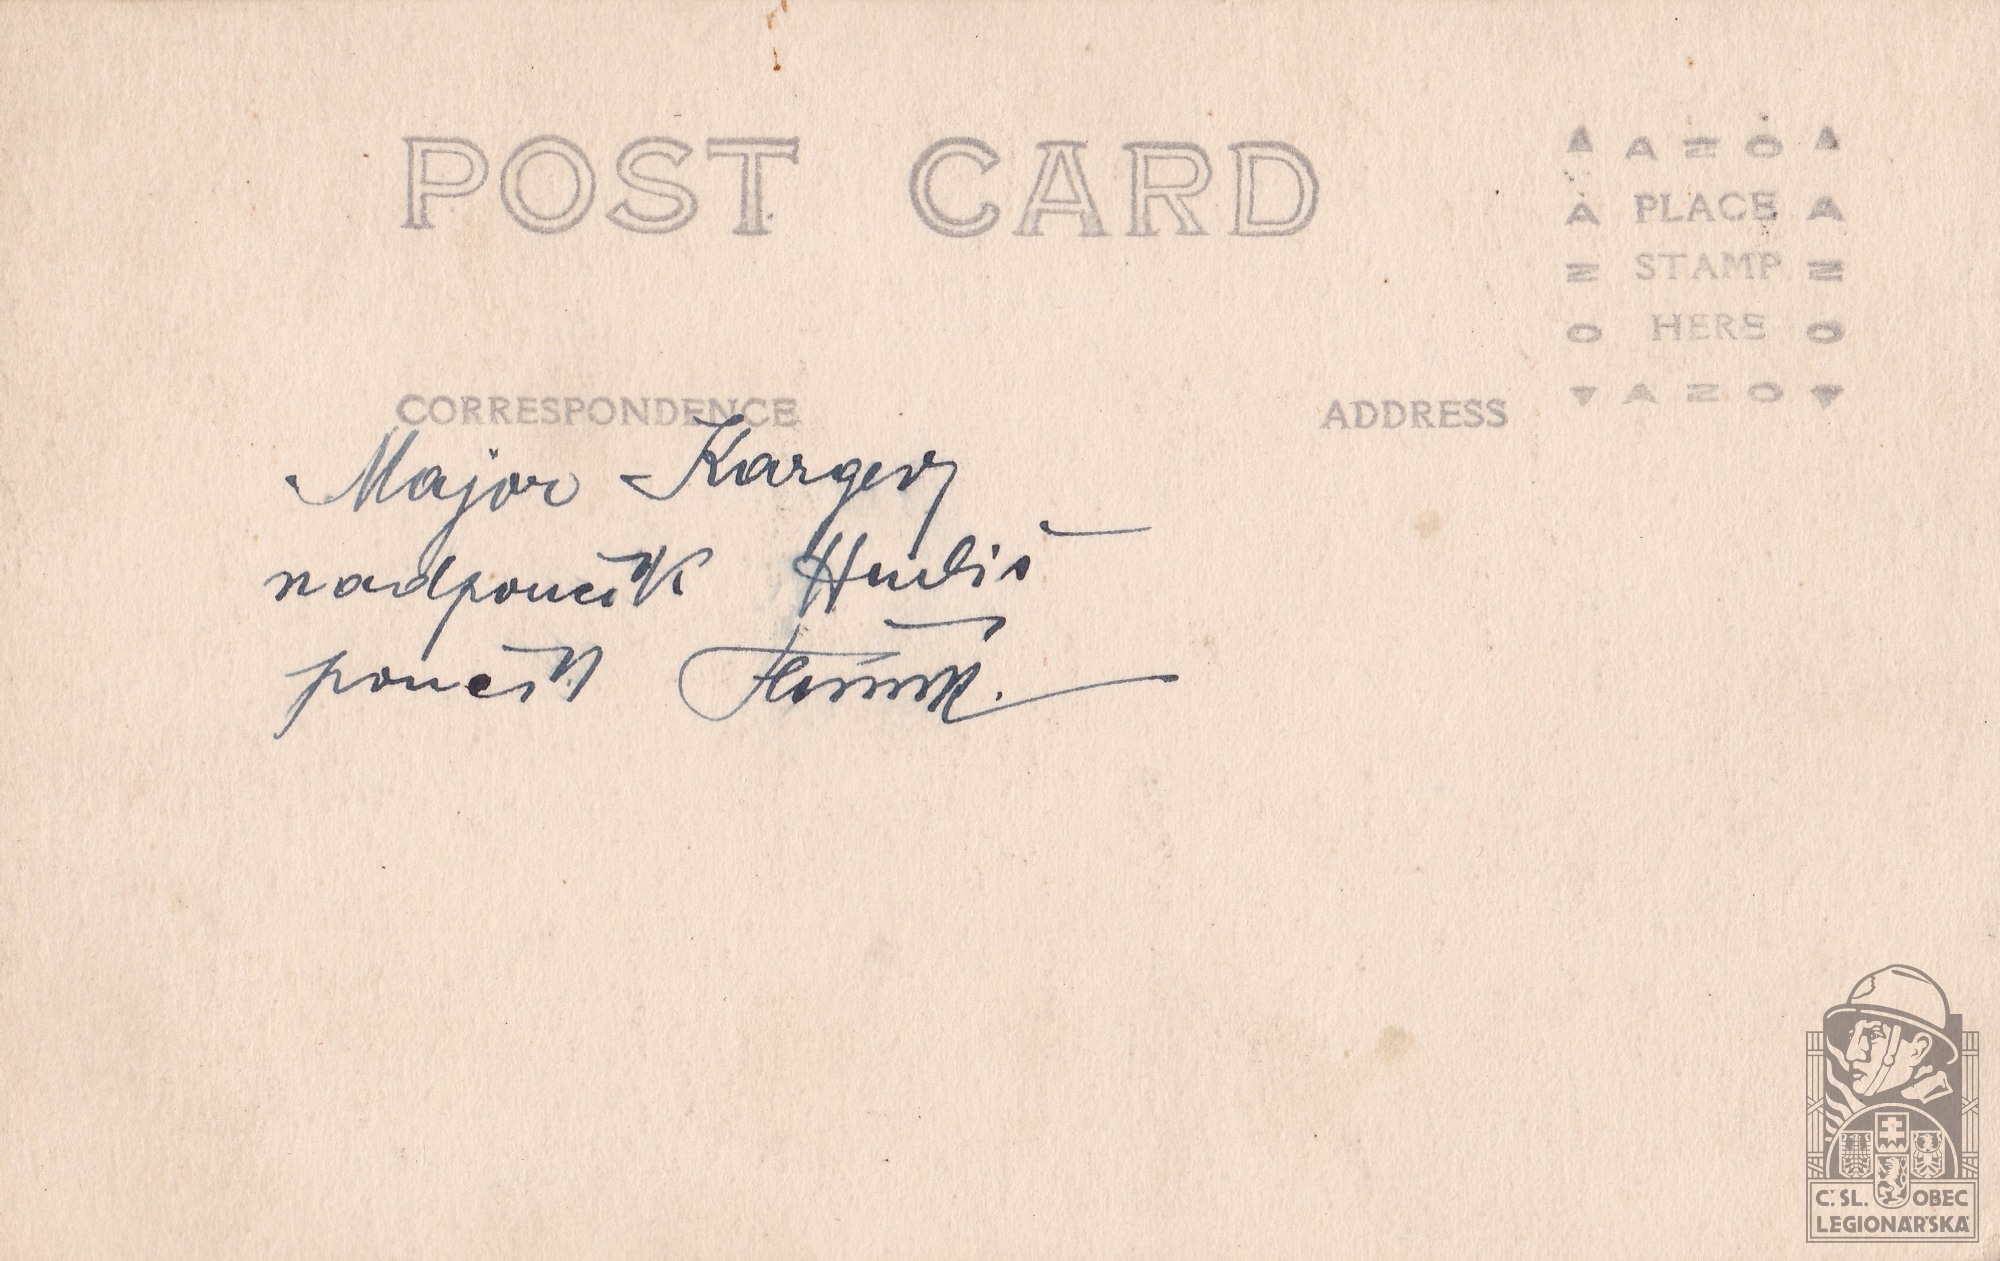 POST CARD
AZO
A PLACE A
N STAMP N
O HERE O
AZO
CORRESPONDENCE
ADDRESS
Major Karger
nadporučík
poručík
Č.SL. OBEC
LEGIONÁŘSKÁ